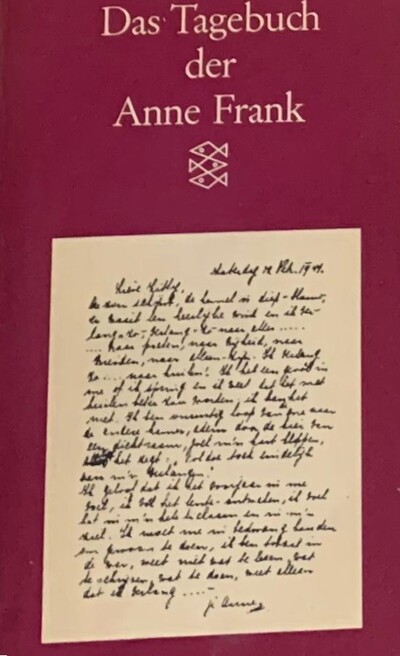 Das Tagebuch
der
Anne Frank
Zaterdag 12 Feb. 1944.
Lieve Kitty,
De zon schijnt, de hemel is diep-blauw,
er waait een heerlijke wind en ik ver-
lang-zo-verlang-zo-naar alles .....
.... Naar praten, naar vrijheid, naar
vrienden, naar alleen-zijn. Ik verlang
zo.... naar huilen! Ik heb een gevoel in
me of ik spring en ik weet dat het met
huilen beter zou worden, ik kan het
niet. Ik ben onrustig, loop van de ene naar
de andere kamer, adem door de kier van
een dicht raam, voel m'n hart kloppen,
het zegt: "Voldoe toch eindelijk
aan m'n verlangen".
Ik geloof dat ik het voorjaar in me
voel, ik voel het lente-ontwaken, ik voel
het in m'n hele lichaam en in m'n
ziel. Ik moet me in bedwang houden
om gewoon te doen, ik ben totaal in
de war, weet niet wat te lezen, wat
te schrijven, wat te doen, weet alleen
dat ik verlang ....
je Anne